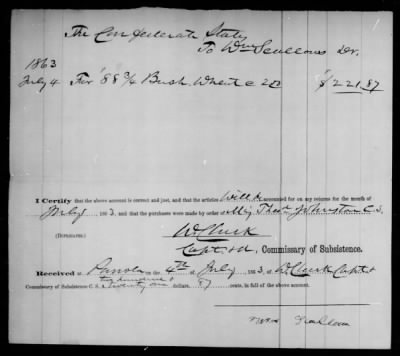 The Confederate States
To Wm Scallons Dr.
1863
July 4 For 88 3/4 Bush Wheat @ 2 50 $221.87
I Certify that the above account is correct and just, and that the articles will be accounted for on my returns for the month of
July 1863, and that the purchases were made by order of Maj Theo Johnston C.S.
(DUPLICATES.)
Capt &, Commissary of Subsistence.
Received at Panola on the 4th of July 1863, of Capt &
Commissary of Subsistence C. S. A. two hundred & twenty one dollars, 87 cents, in full of the above account.